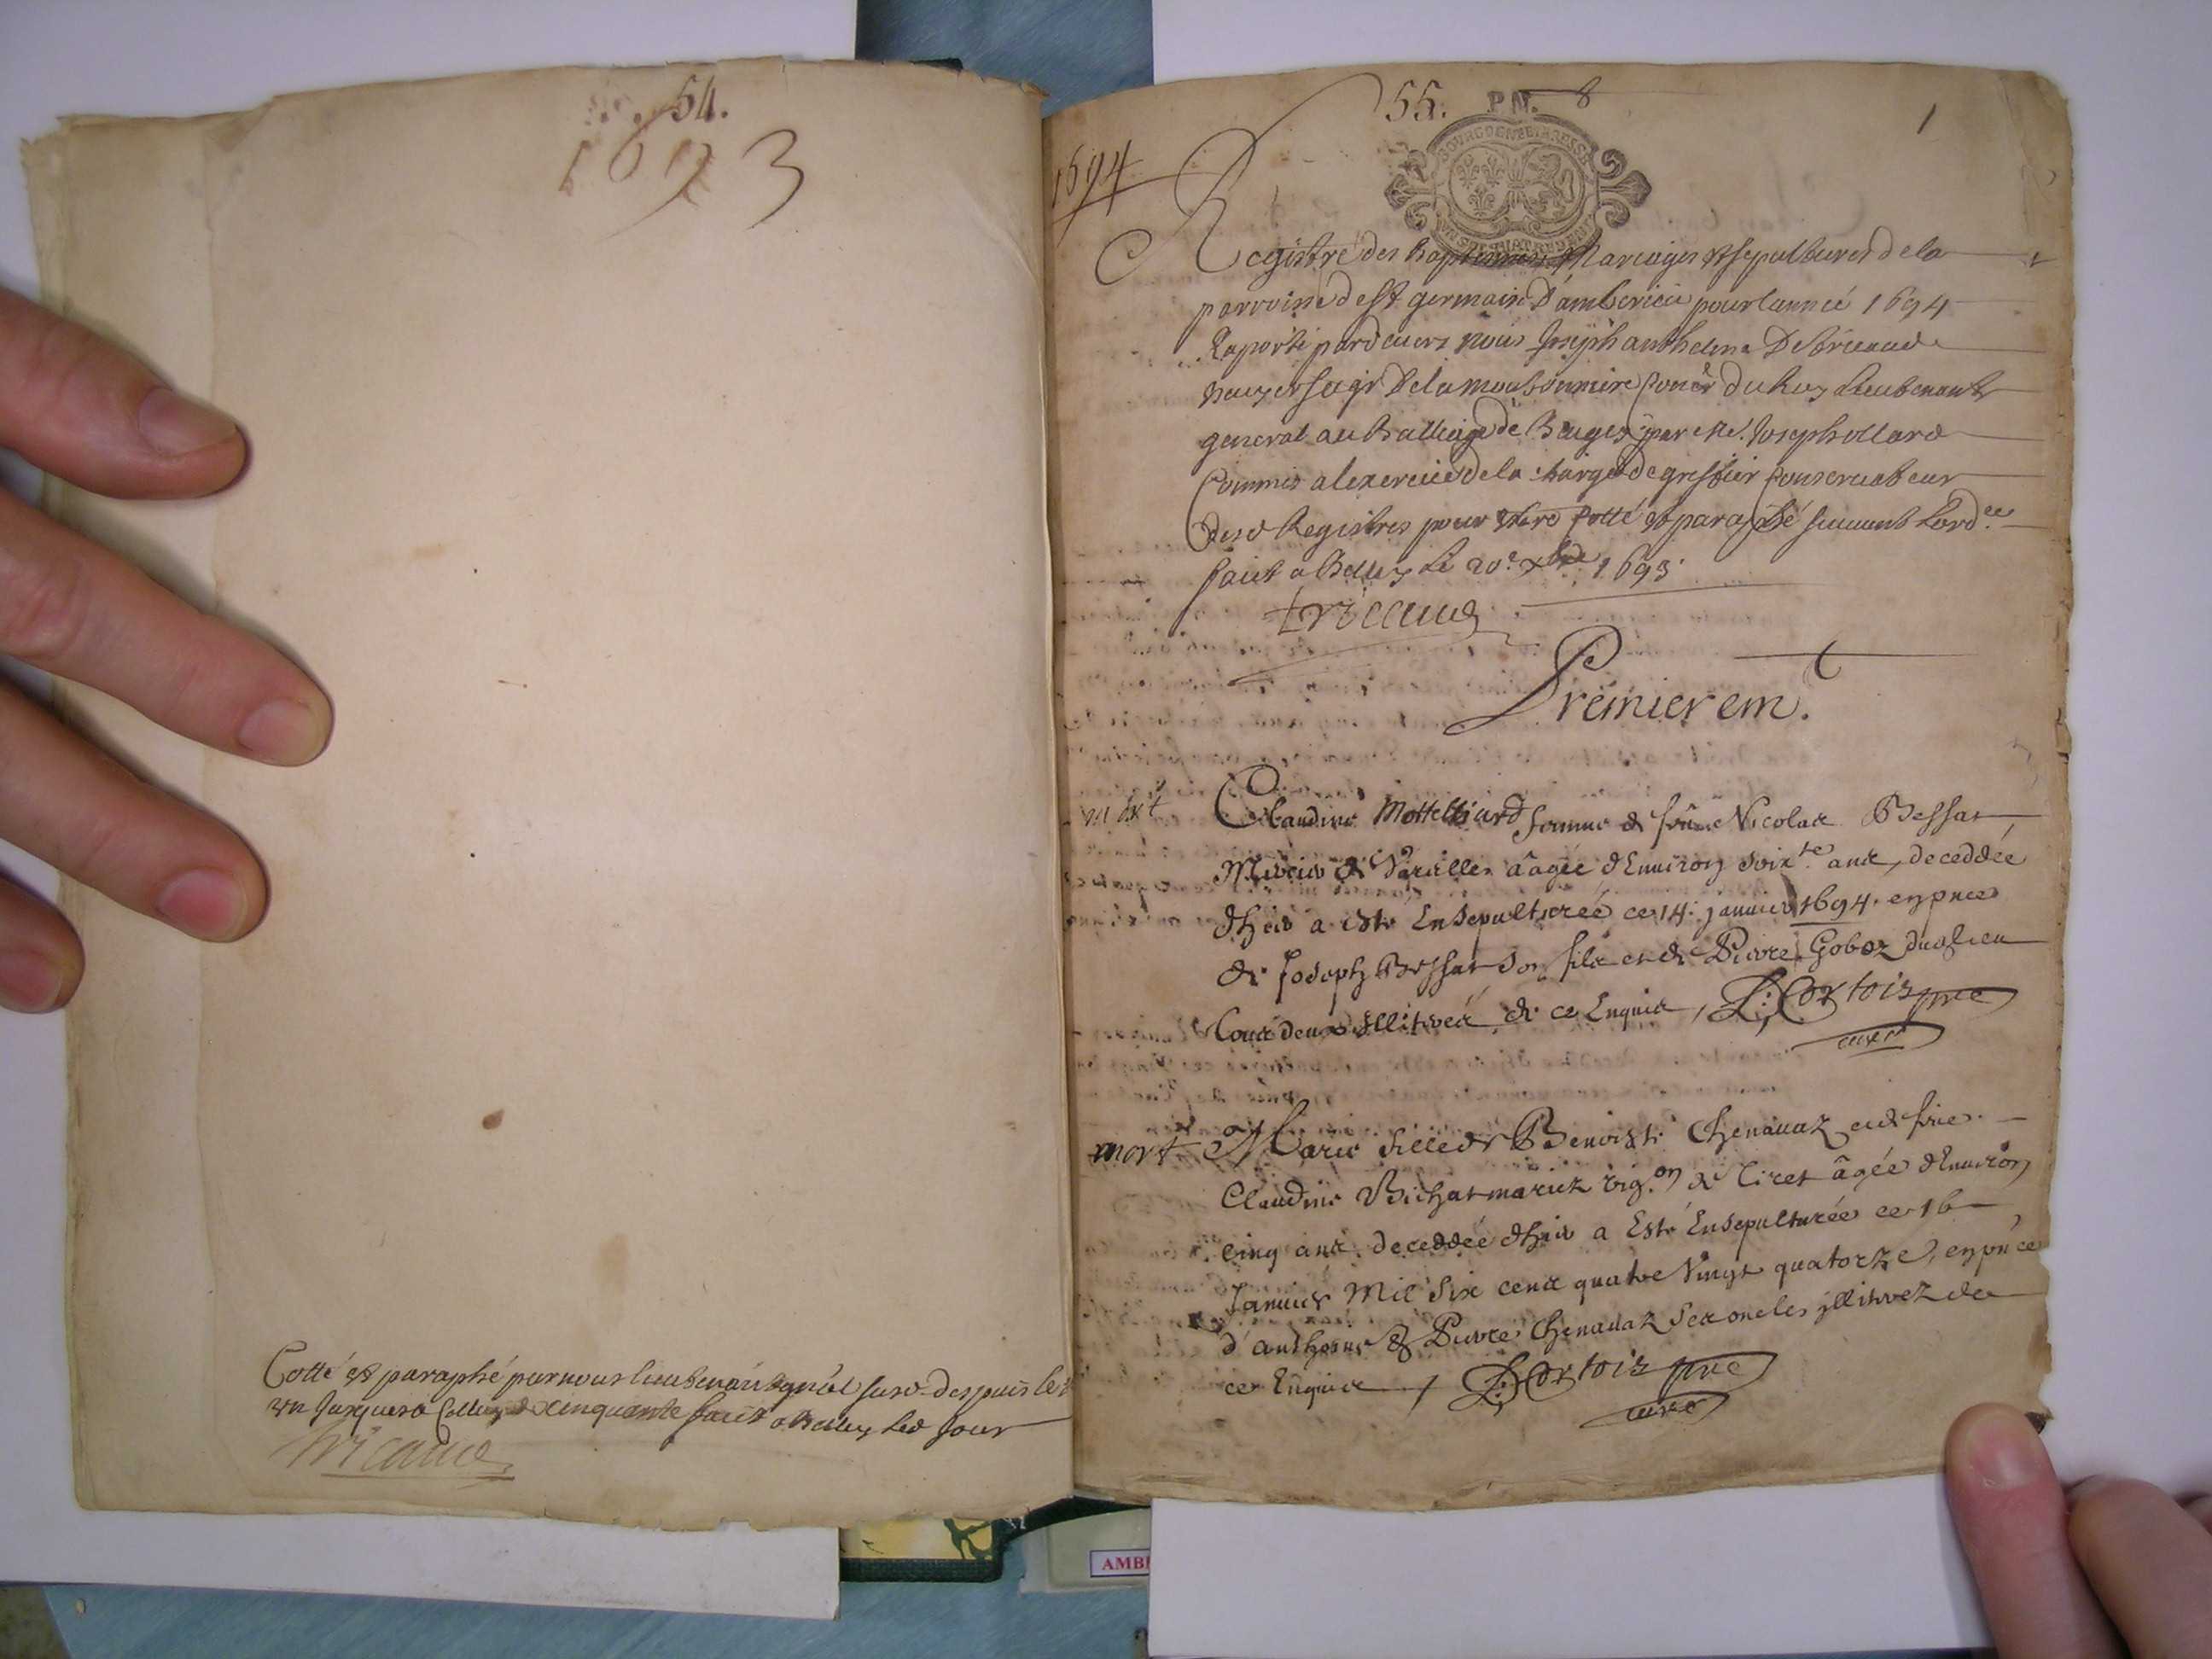 54.
1693
Cotté et paraphé par nous lieutenant gnal susd. despuis le
un jusques a celluy de cinquante fait a Belley led jour
Tricaud
55.
PM. 8
1
1694
BOURGOGNE BRESSE
Registre des baptesmes Mariages et sepultures de la
parroisse de St germain d'amberieu pour l'année 1694
Raporté pardevers nous Joseph anthelme De tricaud
general au Balliage de Beugey par Me. Joseph ollard
Commis a lexercice de la charge de greffier conservateur
desd Registres pour estre cotté et paraphé suivant lord.ce
fait a Belley le 20e xbre 1693
Tricaud
Premierem.t
mort
Claudine Mottelliard femme de feu Nicolas Bessat
de Vareilles âagée d'Environ soix.te ans, deceddée
d'hier a esté Ensepulturée ce 14. janvier 1694. en pnce
de Joseph Bessat son fils et de Pierre Goboz dud lieu
tous deux illitrés de ce Enquis, Cortois pre
curé
mort
Marie fille de Benoist Chenavaz et de fue
Claudine Bichat mariez vig.on de Tiret âgée d'Environ
cinq ans deceddée d'hier a Esté Ensepulturée ce 16
Janvier Mil six cens quatre vingt quatorze, en pnce
d'anthoine et Pierre Chenavaz ses oncles illitrez de
ce Enquis, Cortois pre
curé
AMB